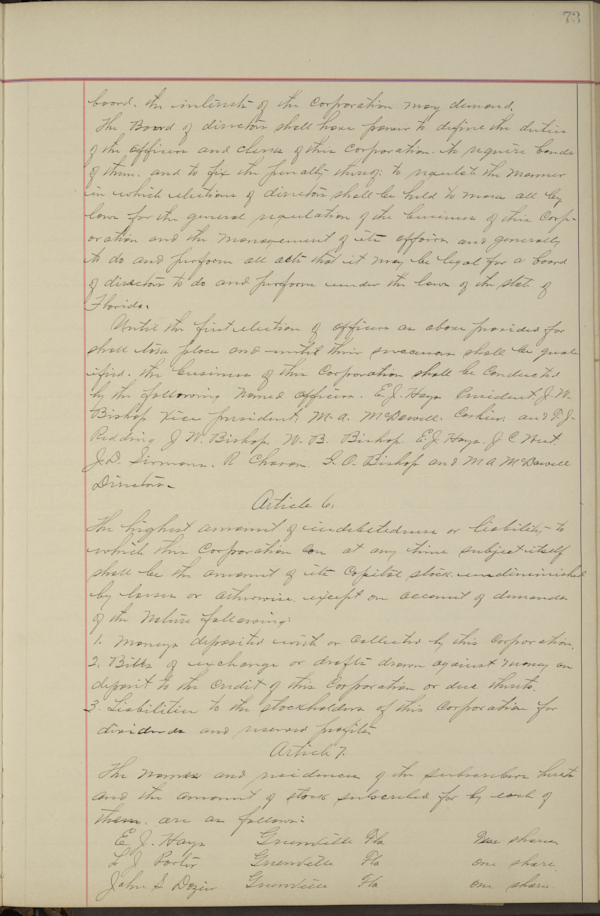 73
board. the interests of the Corporation may demand.
The Board of directors shall have power to define the duties
of the officers and clerks of this Corporation. to require bonds
of them. and to fix the penalty thereof; to regulate the manner
in which elections of directors shall be held to make all by
laws for the general regulation of the business of this Corp-
oration and the management of its affairs and generally
to do and perform all acts that it may be legal for a board
of directors to do and perform under the laws of the state of
Florida.
Until the first election of officers as above provided for
shall take place and until their successors shall be qual-
ified. the business of this Corporation shall be conducted
by the following named officers. E. J. Hays President, J. N.
Bishop Vice president, M. A. McDowell. Cashier, and
Redding J. N. Bishop. W. B. Bishop E. J. Hays. J. C.
J. D. Sirmans. R. S. O. Bishop and M A McDowell
Directors.
Article 6.
The highest amount of indebtedness or liability to
which this Corporation can at any time subject itself
shall be the amount of its Capital stock undiminished
by losses or otherwise. except on account of demands
of the Nature following:
1. Moneys deposited with or collected by this Corporation.
2. Bills of exchange or drafts drawn against money on
deposit to the credit of this Corporation or due thereto.
3. Liabilities to the stockholders of this Corporation for
dividends and reserved profits
Article 7.
The names and residences of the subscribers hereto
and the amount of stock subscribed for by each of
them. are as follows:
E. J. Hays Greenville Fla shares
L J Greenville Fla one share.
John S Dozier Greenville Fla one share.